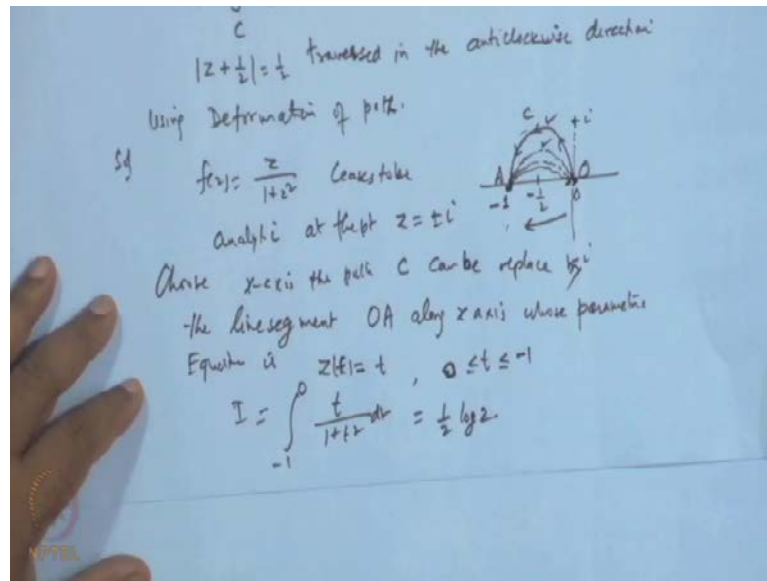 C
|z + 1/2| = 1/2 traversed in the anticlockwise direction
Using Deformation of path.
Sol
f(z) = z/(1+z²) Ceases to be
analytic at the pt z = ±i
C +i
A O
-1 -1/2 0
-i
Choose x-axis the path C can be replace by
the line segment OA along x axis whose parametric
Equation is z(t) = t , 0 ≤ t ≤ -1
I = ∫_{-1}^{0} t/(1+t²) dt = 1/2 log 2.
NPTEL